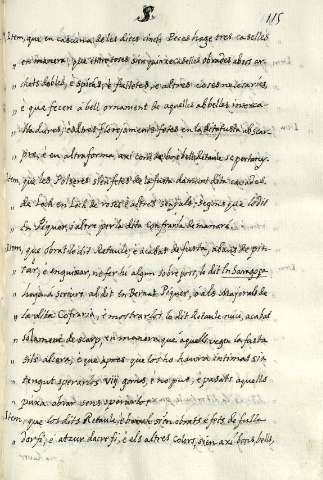 S. 115
Item, que en cascuna de les dites cinch Peces hage tres caselles
en manera que entre totes sien quinze caselles obrades ab ors ar
chets dobles, è spigas, è fulletes, è altres coses necessaries,
è que fezen a bell ornament de aquelles ab belles
è altres florejaments fetes en la dita fusta
pre, è en altra forma, axi com de bon è bell Retaule se pertany.
Item, que les Polseres sien fetes de la fusta damunt dita
de Lach en Lach de roses è altres senyals, segons que lo dit
En Piquer, o altre per la dita confraria demanara.
Item, que obrat lo dit Retaule, è acabat de fusta, abans de pin-
tar, o enguixar, ne fer hi algun sobre post, lo dit In Saragoça
haja à scriure al dit en Bernat Piquer, o als Majorals de
la dita Cofraria, è mostrar los lo dit Retaule nuu, acabat
solament de scarp, en manera que aquells vegen la fusta
sils altera; è que apres que los ho haura intimas sia
tengut sperarlos viij. jorns, è no pus, è passats aquells
puxa obrar sens sperarlos.
Item, que los dits Retaule, è banch sien obrats è fets de fulla
d or fi; è atzur d acre fi; è els altres Colors, sien axi bons, bells,